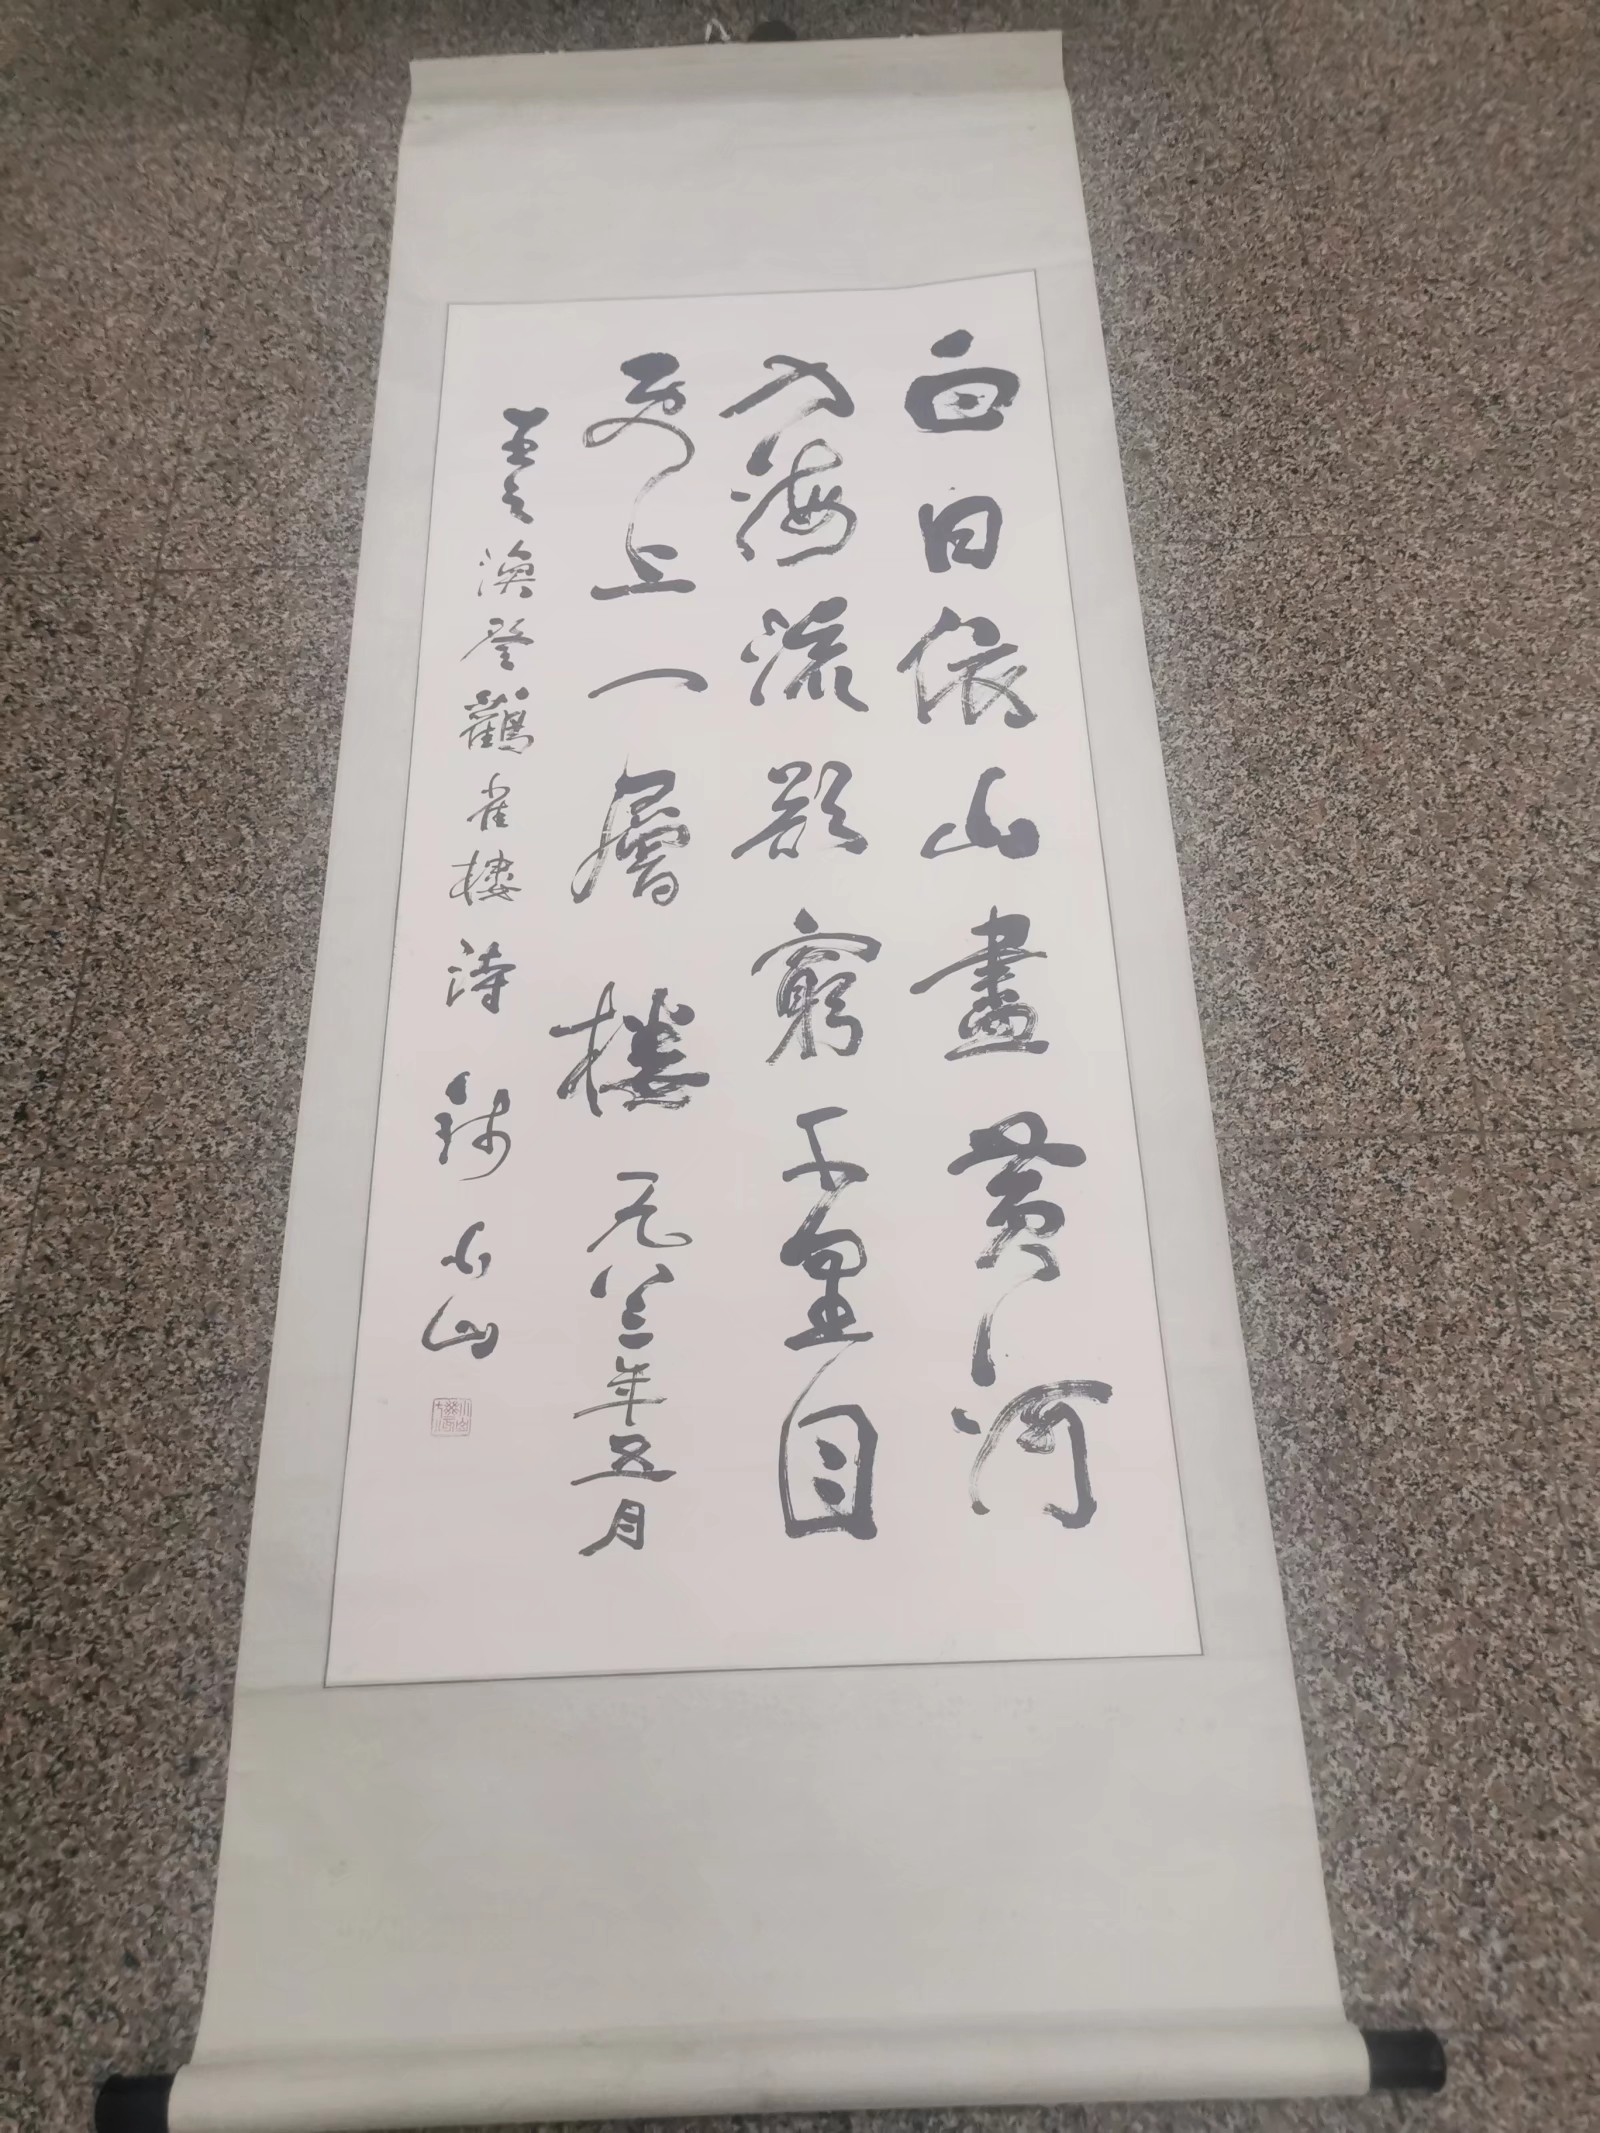 白日依山盡黃河
入海流欲窮千里目
更上一層樓 一九八三年五月
王之渙登鸛雀樓詩 錢小山